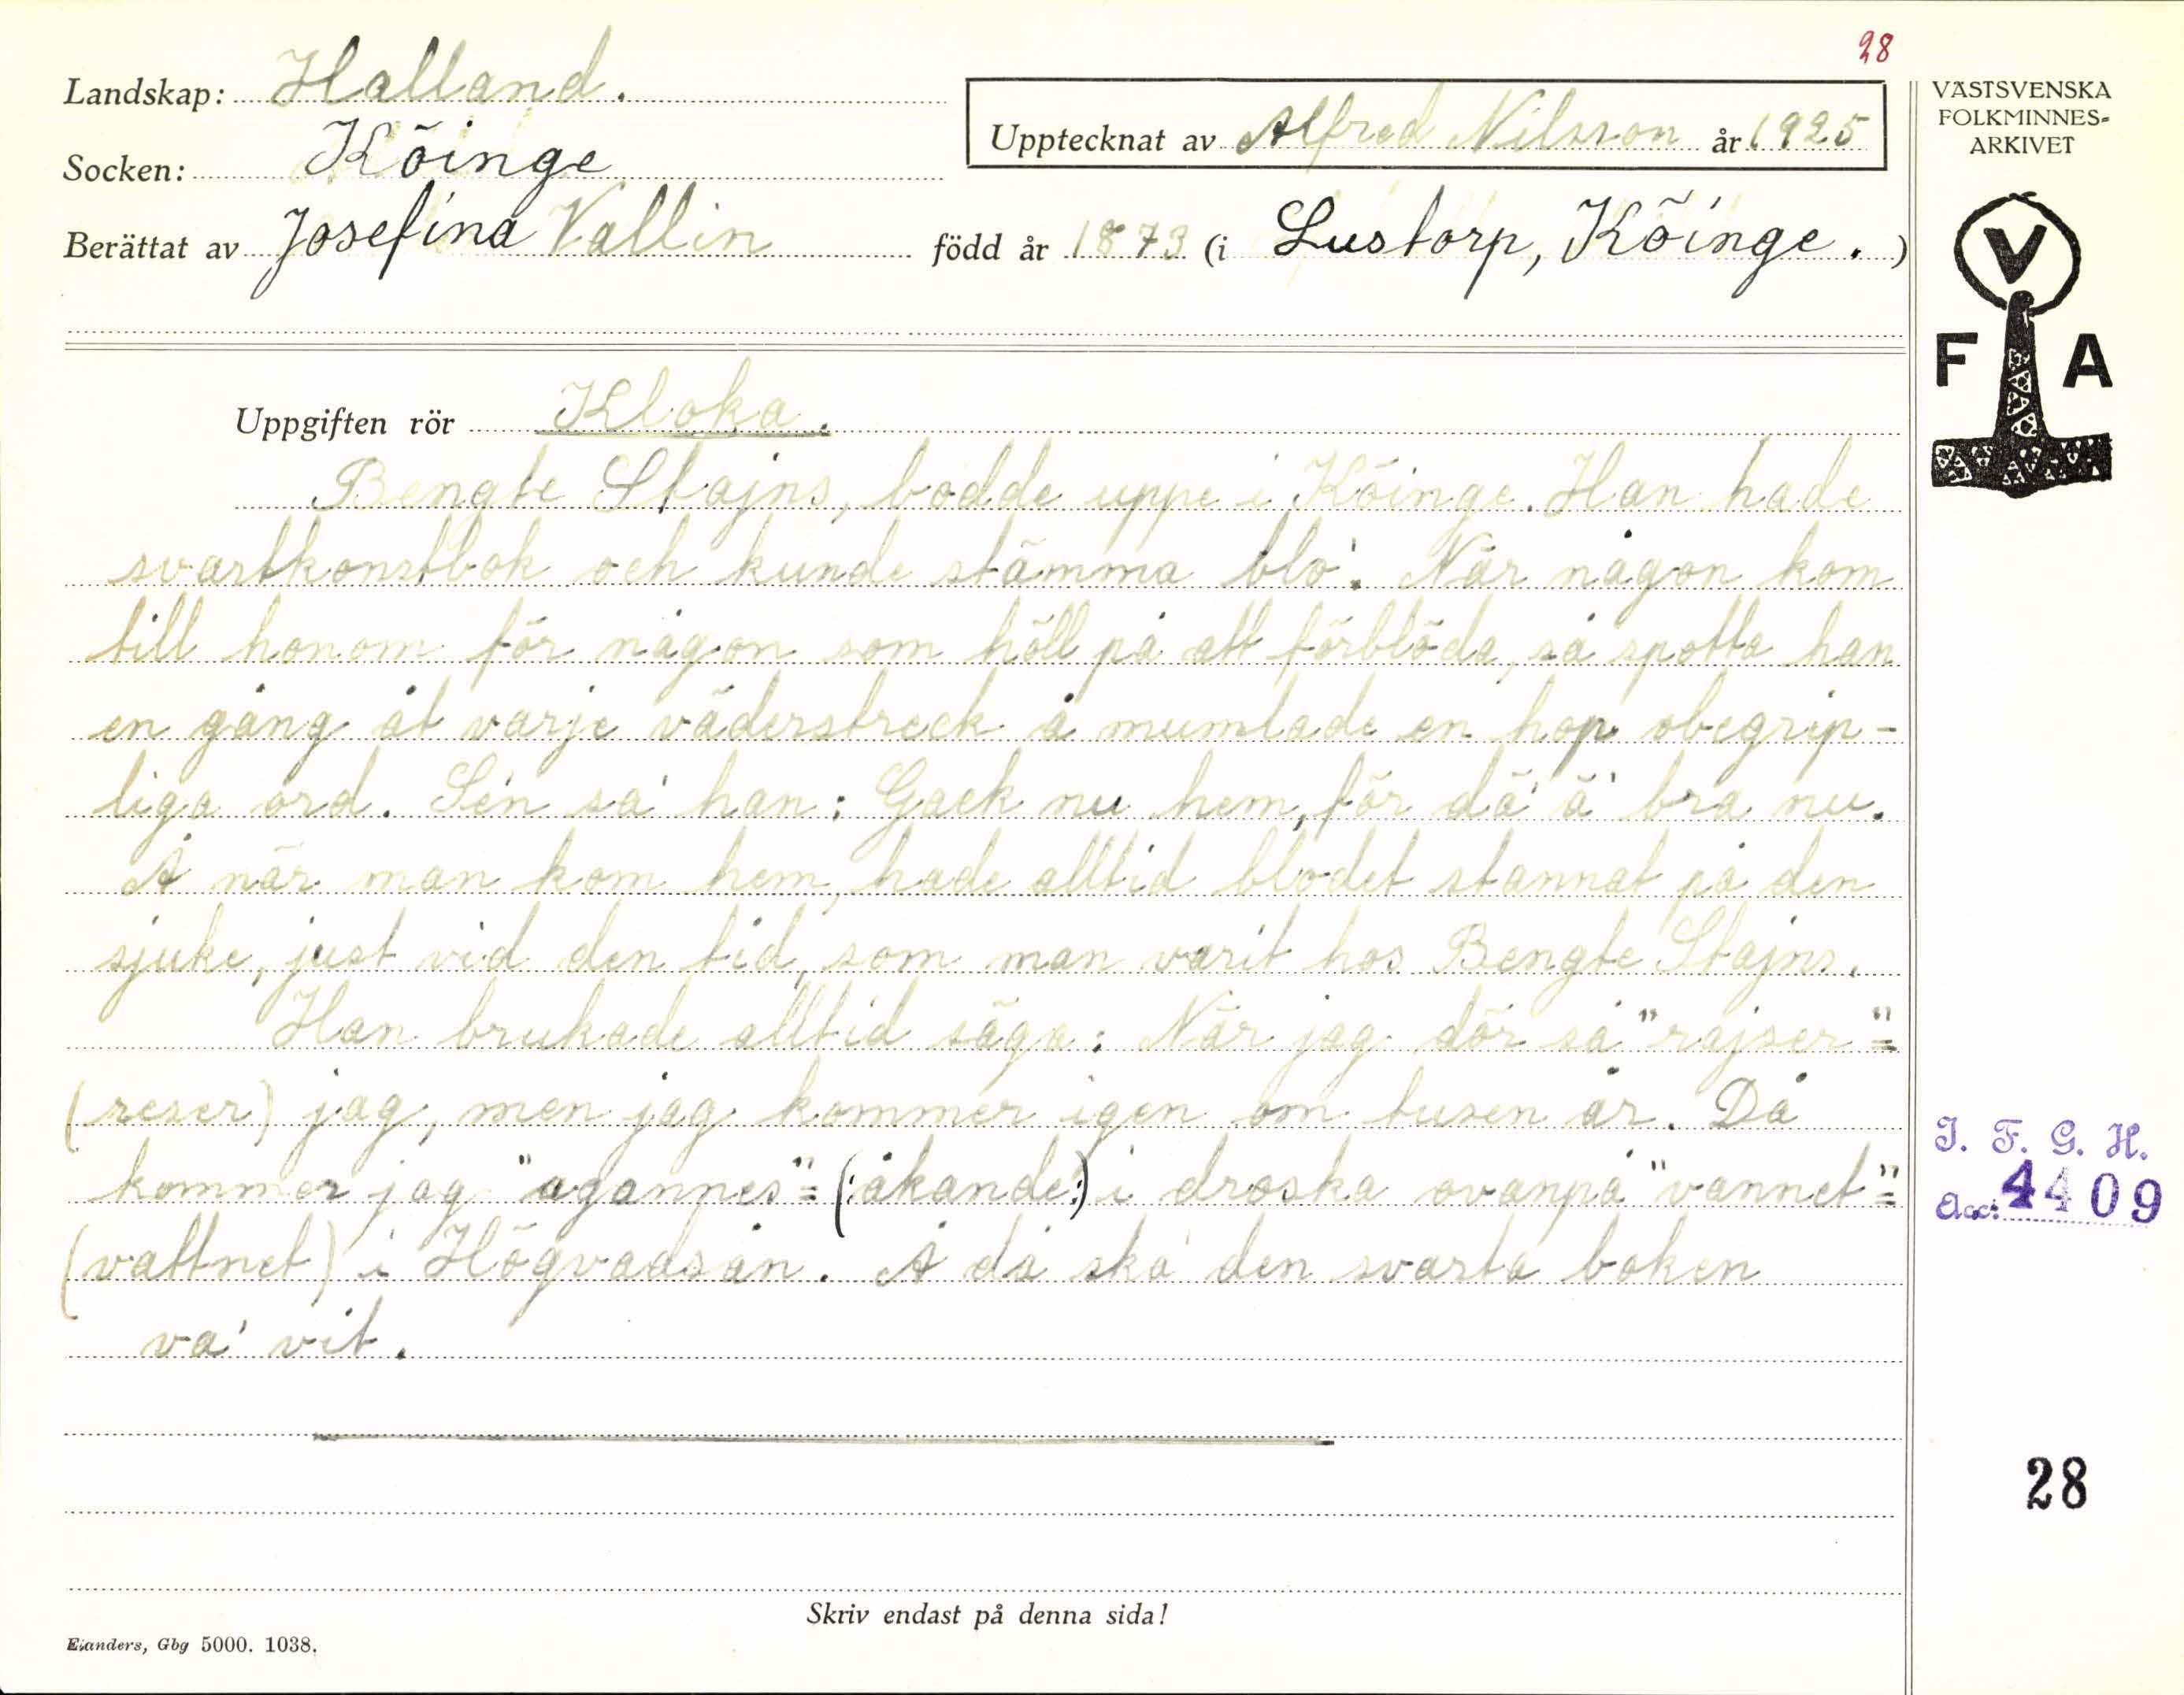 28
Landskap: Halland.
Upptecknat av Alfred Nilsson år 1925
Socken: Köinge
Berättat av Josefina Vallin född år 1873 (i Lustorp, Köinge.)
VÄSTSVENSKA
FOLKMINNES-
ARKIVET
V
F A
Uppgiften rör Kloka.
Bengte Stajns, bodde uppe i Köinge. Han hade
svartkonstbok och kunde stämma blo'. När någon kom
till honom för någon som höll på att förblöda, så spotta han
en gång åt varje väderstreck å mumlade en hop obegrip-
liga ord. Sen sa' han: Gack nu hem, för dä' ä' bra nu.
Å när man kom hem, hade alltid blodet stannat på den
sjuke, just vid den tid, som man varit hos Bengte Stajns.
Han brukade alltid säga: När jag dör så "rajser" =
(reser) jag, men jag kommer igen om tusen år. Då
kommer jag "agannes" = (:åkande:) i droska ovanpå "vannet" =
(vattnet) i Högvadsån. Å då ska' den svarta boken
va' vit.
I. F. G. H.
Acc: 4409
28
Skriv endast på denna sida!
Elanders, Gbg 5000. 1038.